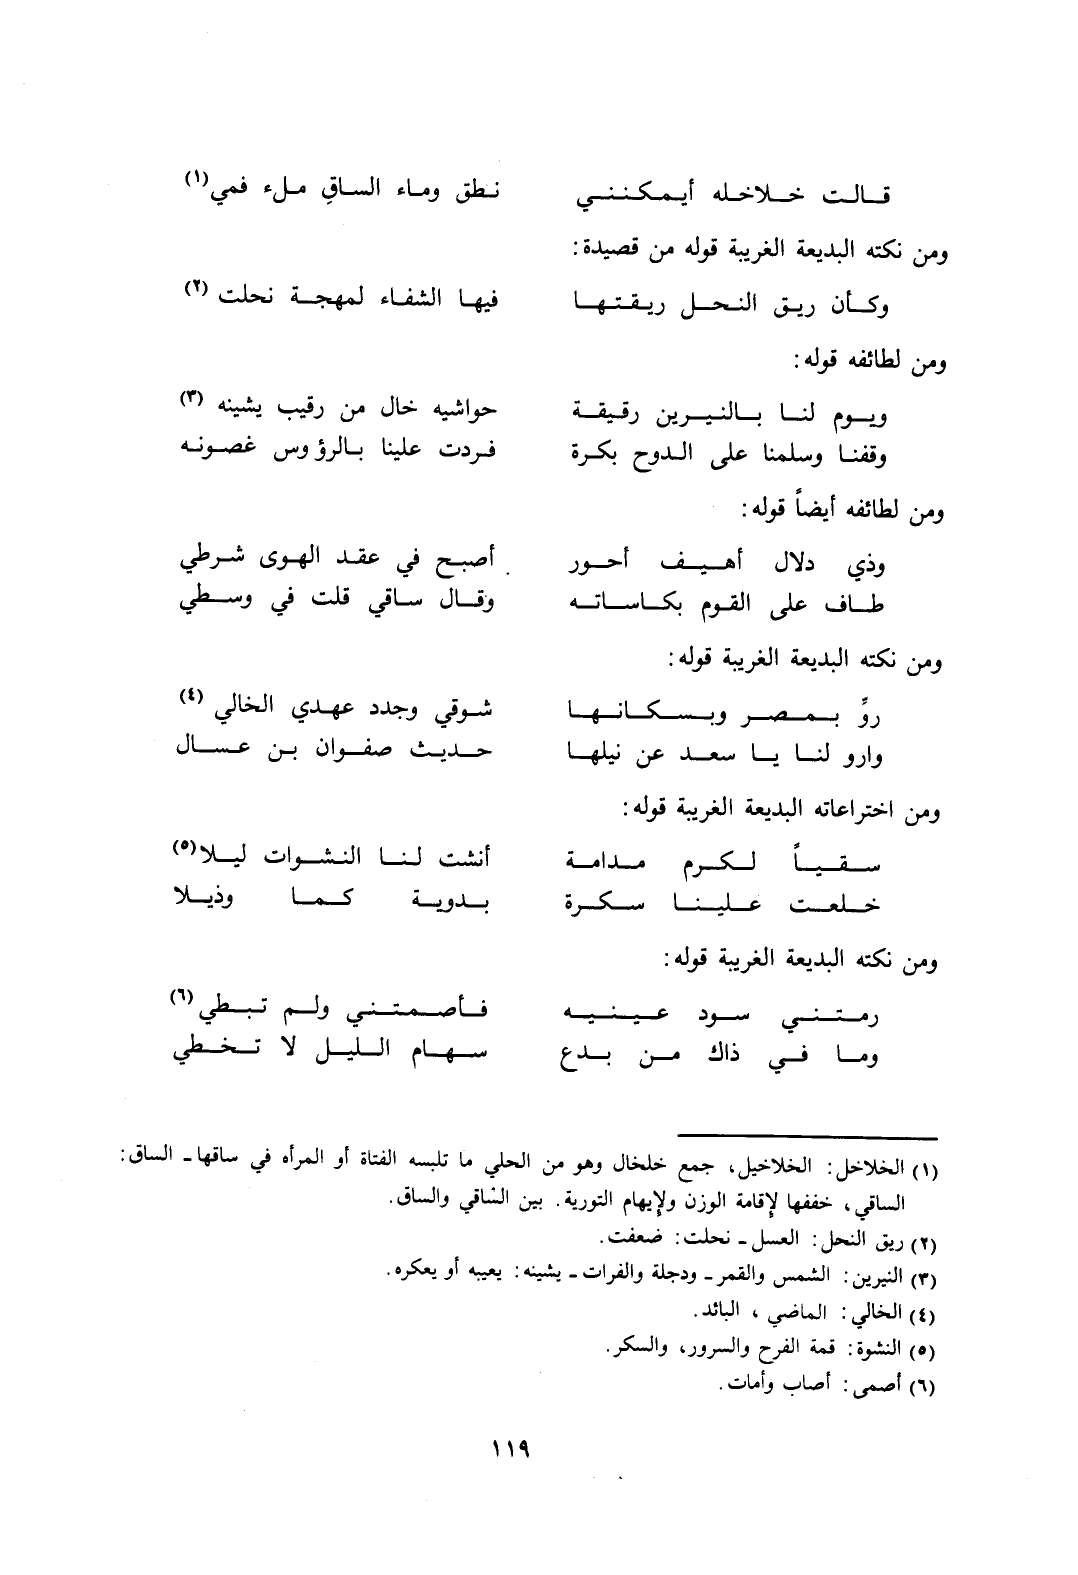 قالت خلاخله أيمكنني نطق وماء الساقِ ملء فمي(١)
ومن نكته البديعة الغريبة قوله من قصيدة:
وكأن ريق النحل ريقتها فيها الشفاء لمهجة نحلت (٢)
ومن لطائفه قوله:
ويوم لنا بالنيرين رقيقة حواشيه خال من رقيب يشينه (٣)
وقفنا وسلمنا على الدوح بكرة فردت علينا بالرؤوس غصونه
ومن لطائفه أيضاً قوله:
وذي دلال أهيف أحور أصبح في عقد الهوى شرطي
طاف على القوم بكاساته وقال ساقي قلت في وسطي
ومن نكته البديعة الغريبة قوله:
روِّ بمصر وبسكانها شوقي وجدد عهدي الخالي (٤)
وارو لنا يا سعد عن نيلها حديث صفوان بن عسال
ومن اختراعاته البديعة الغريبة قوله:
سقياً لكرم مدامة أنشت لنا النشوات ليلا(٥)
خلعت علينا سكرة بدوية كما وذيلا
ومن نكته البديعة الغريبة قوله:
رمتني سود عينيه فأصمتني ولم تبطي (٦)
وما في ذاك من بدع سهام الليل لا تخطي
(١) الخلاخل: الخلاخيل، جمع خلخال وهو من الحلي ما تلبسه الفتاة أو المرأه في ساقها ـ الساق:
الساقي، خففها لإقامة الوزن ولإيهام التورية. بين الساقي والساق.
(٢) ريق النحل: العسل ـ نحلت: ضعفت.
(٣) النيرين: الشمس والقمر ـ ودجلة والفرات ـ يشينه: يعيبه أو يعكره.
(٤) الخالي: الماضي ، البائد.
(٥) النشوة: قمة الفرح والسرور، والسكر.
(٦) أصمى: أصاب وأمات.
١١٩